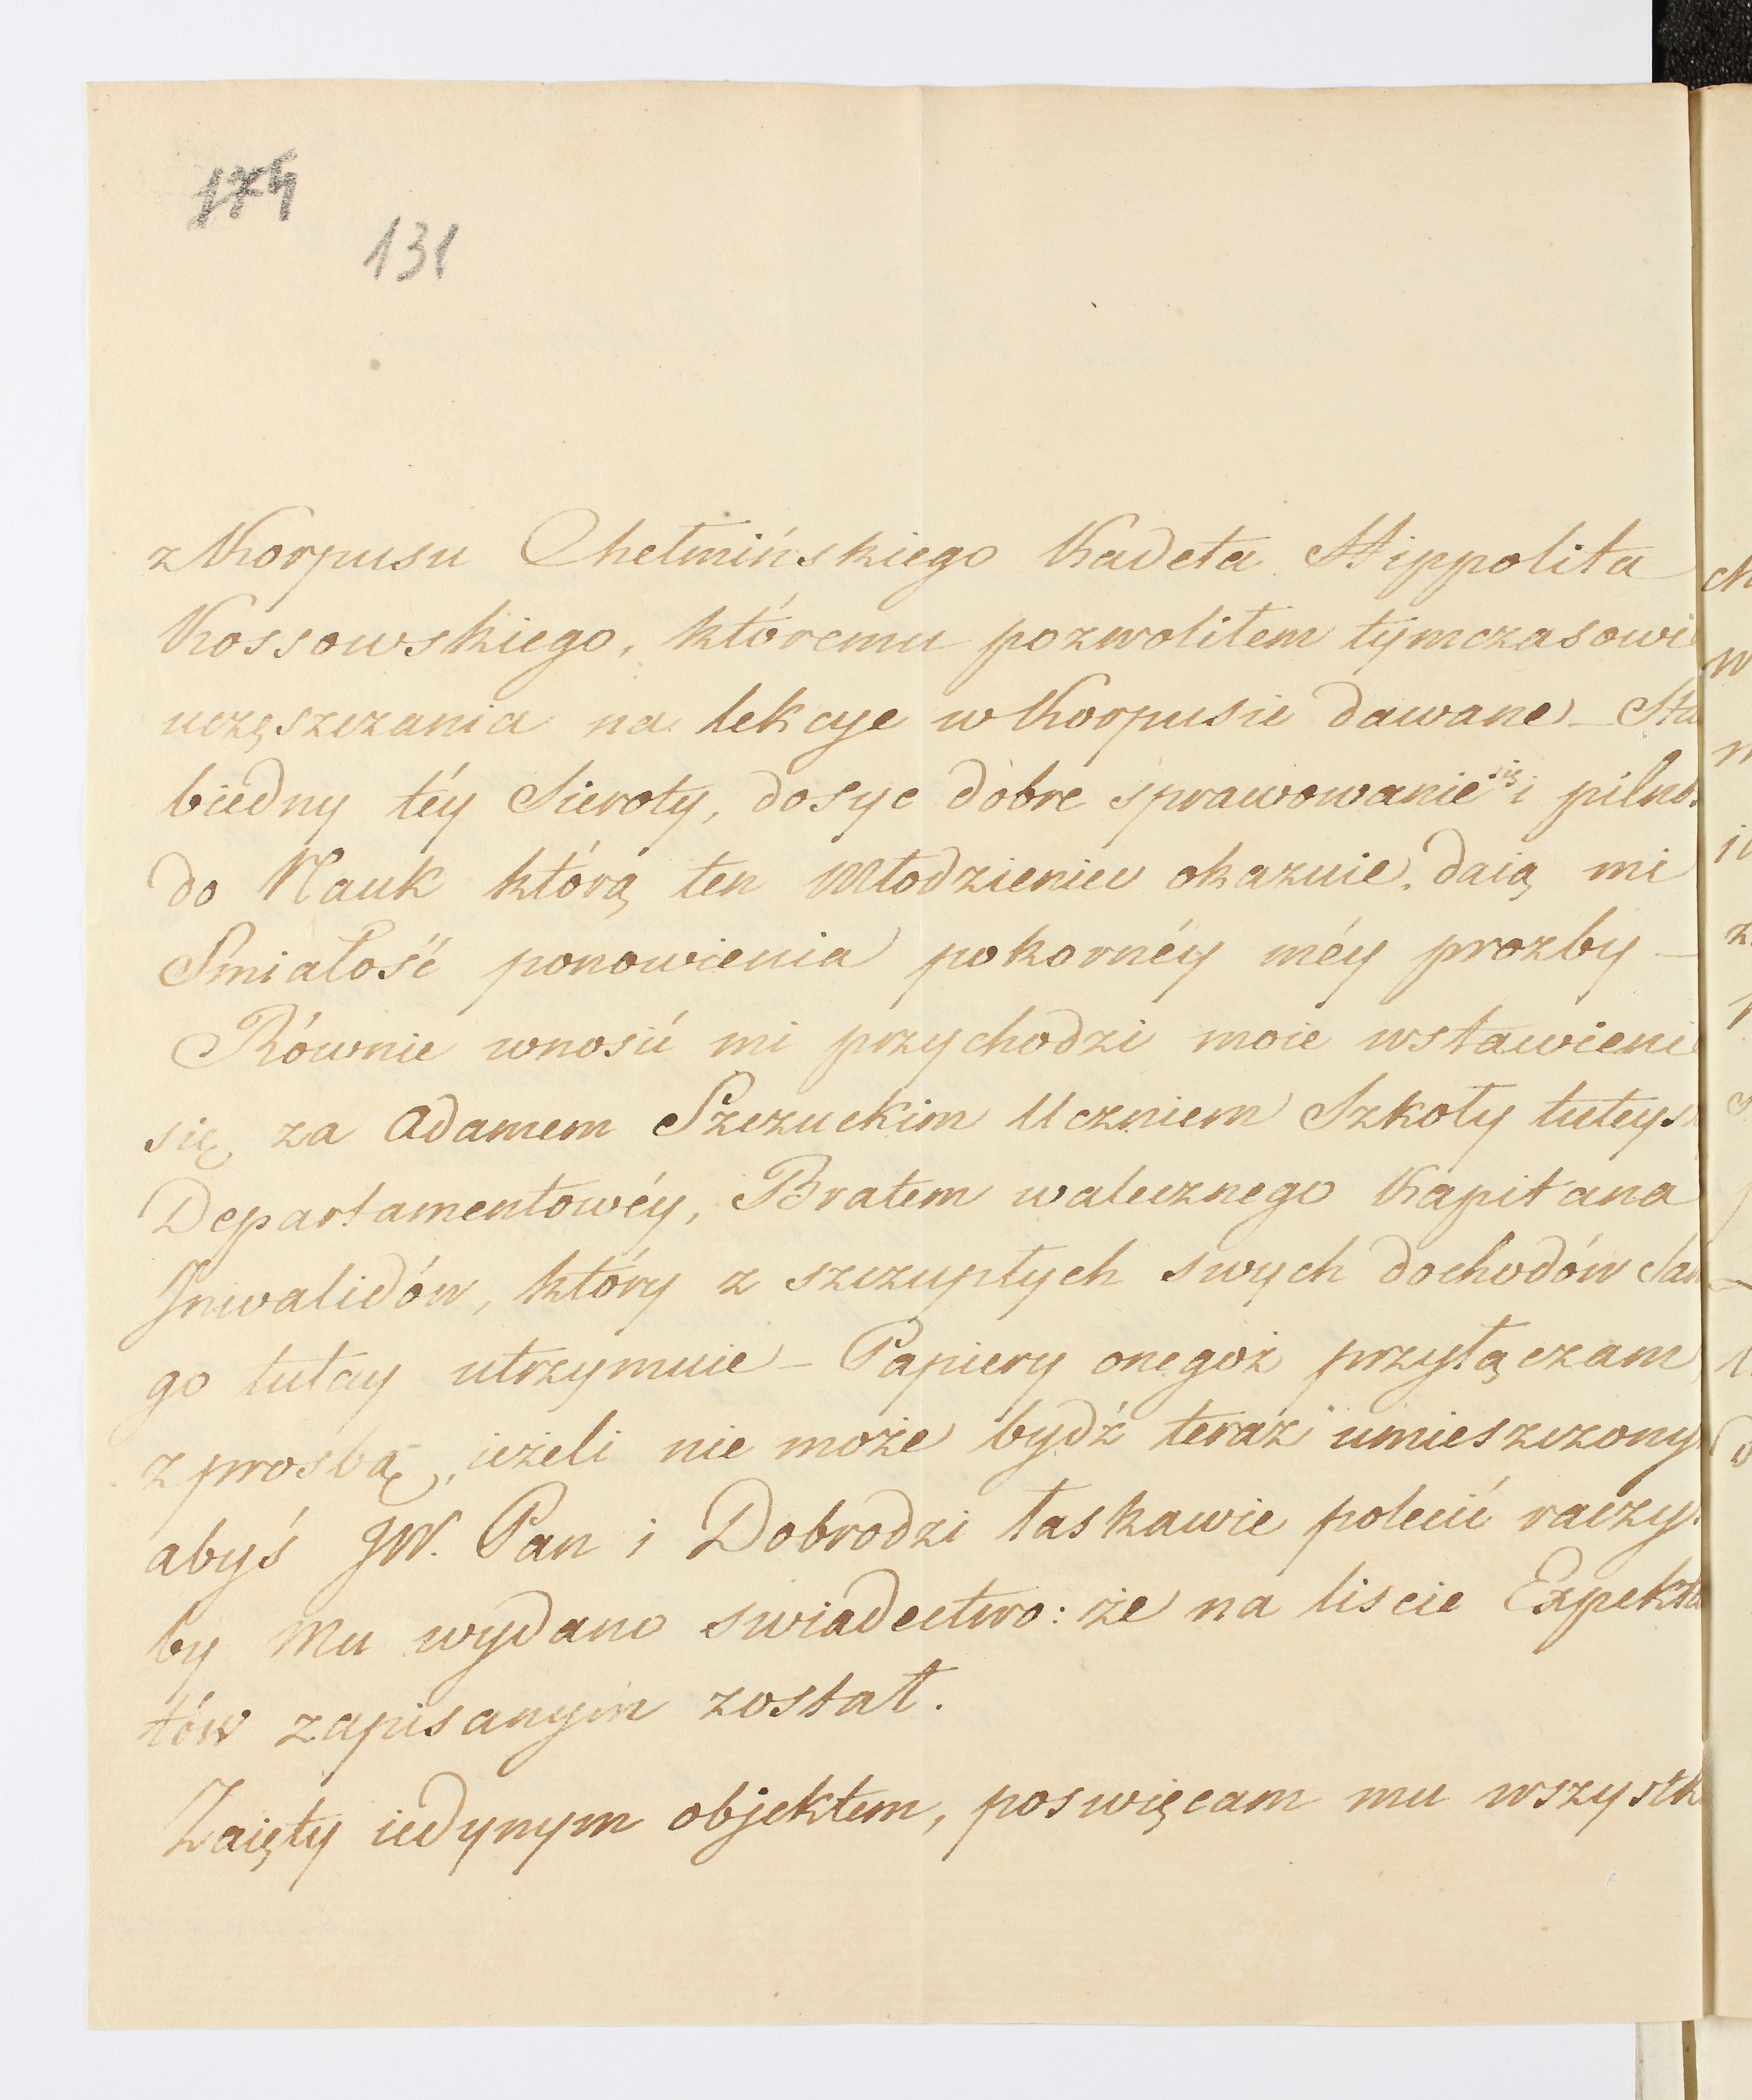 174
131
z Korpusu Chełmińskiego Kadeta Hippolita
Kossowskiego, któremu pozwoliłem tymczasowie
uczęszczania na lekcye w Korpusie dawane – Sta
biedny téy Sieroty, dosyc dobre sprawowanie się i pilno
do Nauk którą ten Młodzieniec okazuie, daią mi
Smiałość ponowienia pokornéy méy prozby –
Równie wnosić mi przychodzi moie wstawieni
się za Adamem Szczuckim Uczniem Szkoły tuteys
Departamentowéy, Bratem walecznego Kapitana
Jnwalidów, który z szczupłych swych dochodów Sam
go tutay utrzymuie – Papiery onegoż przyłączam
z prosbą, ieżeli nie może bydź teraz umieszczony
abyś JW. Pan i Dobrodzi łaskawie polecić raczy
by Mu wydano swiadectwo: że na liscie Expekta
tów zapisanym został.
Zaięty iedynym objektem, poswięcam mu wszystk